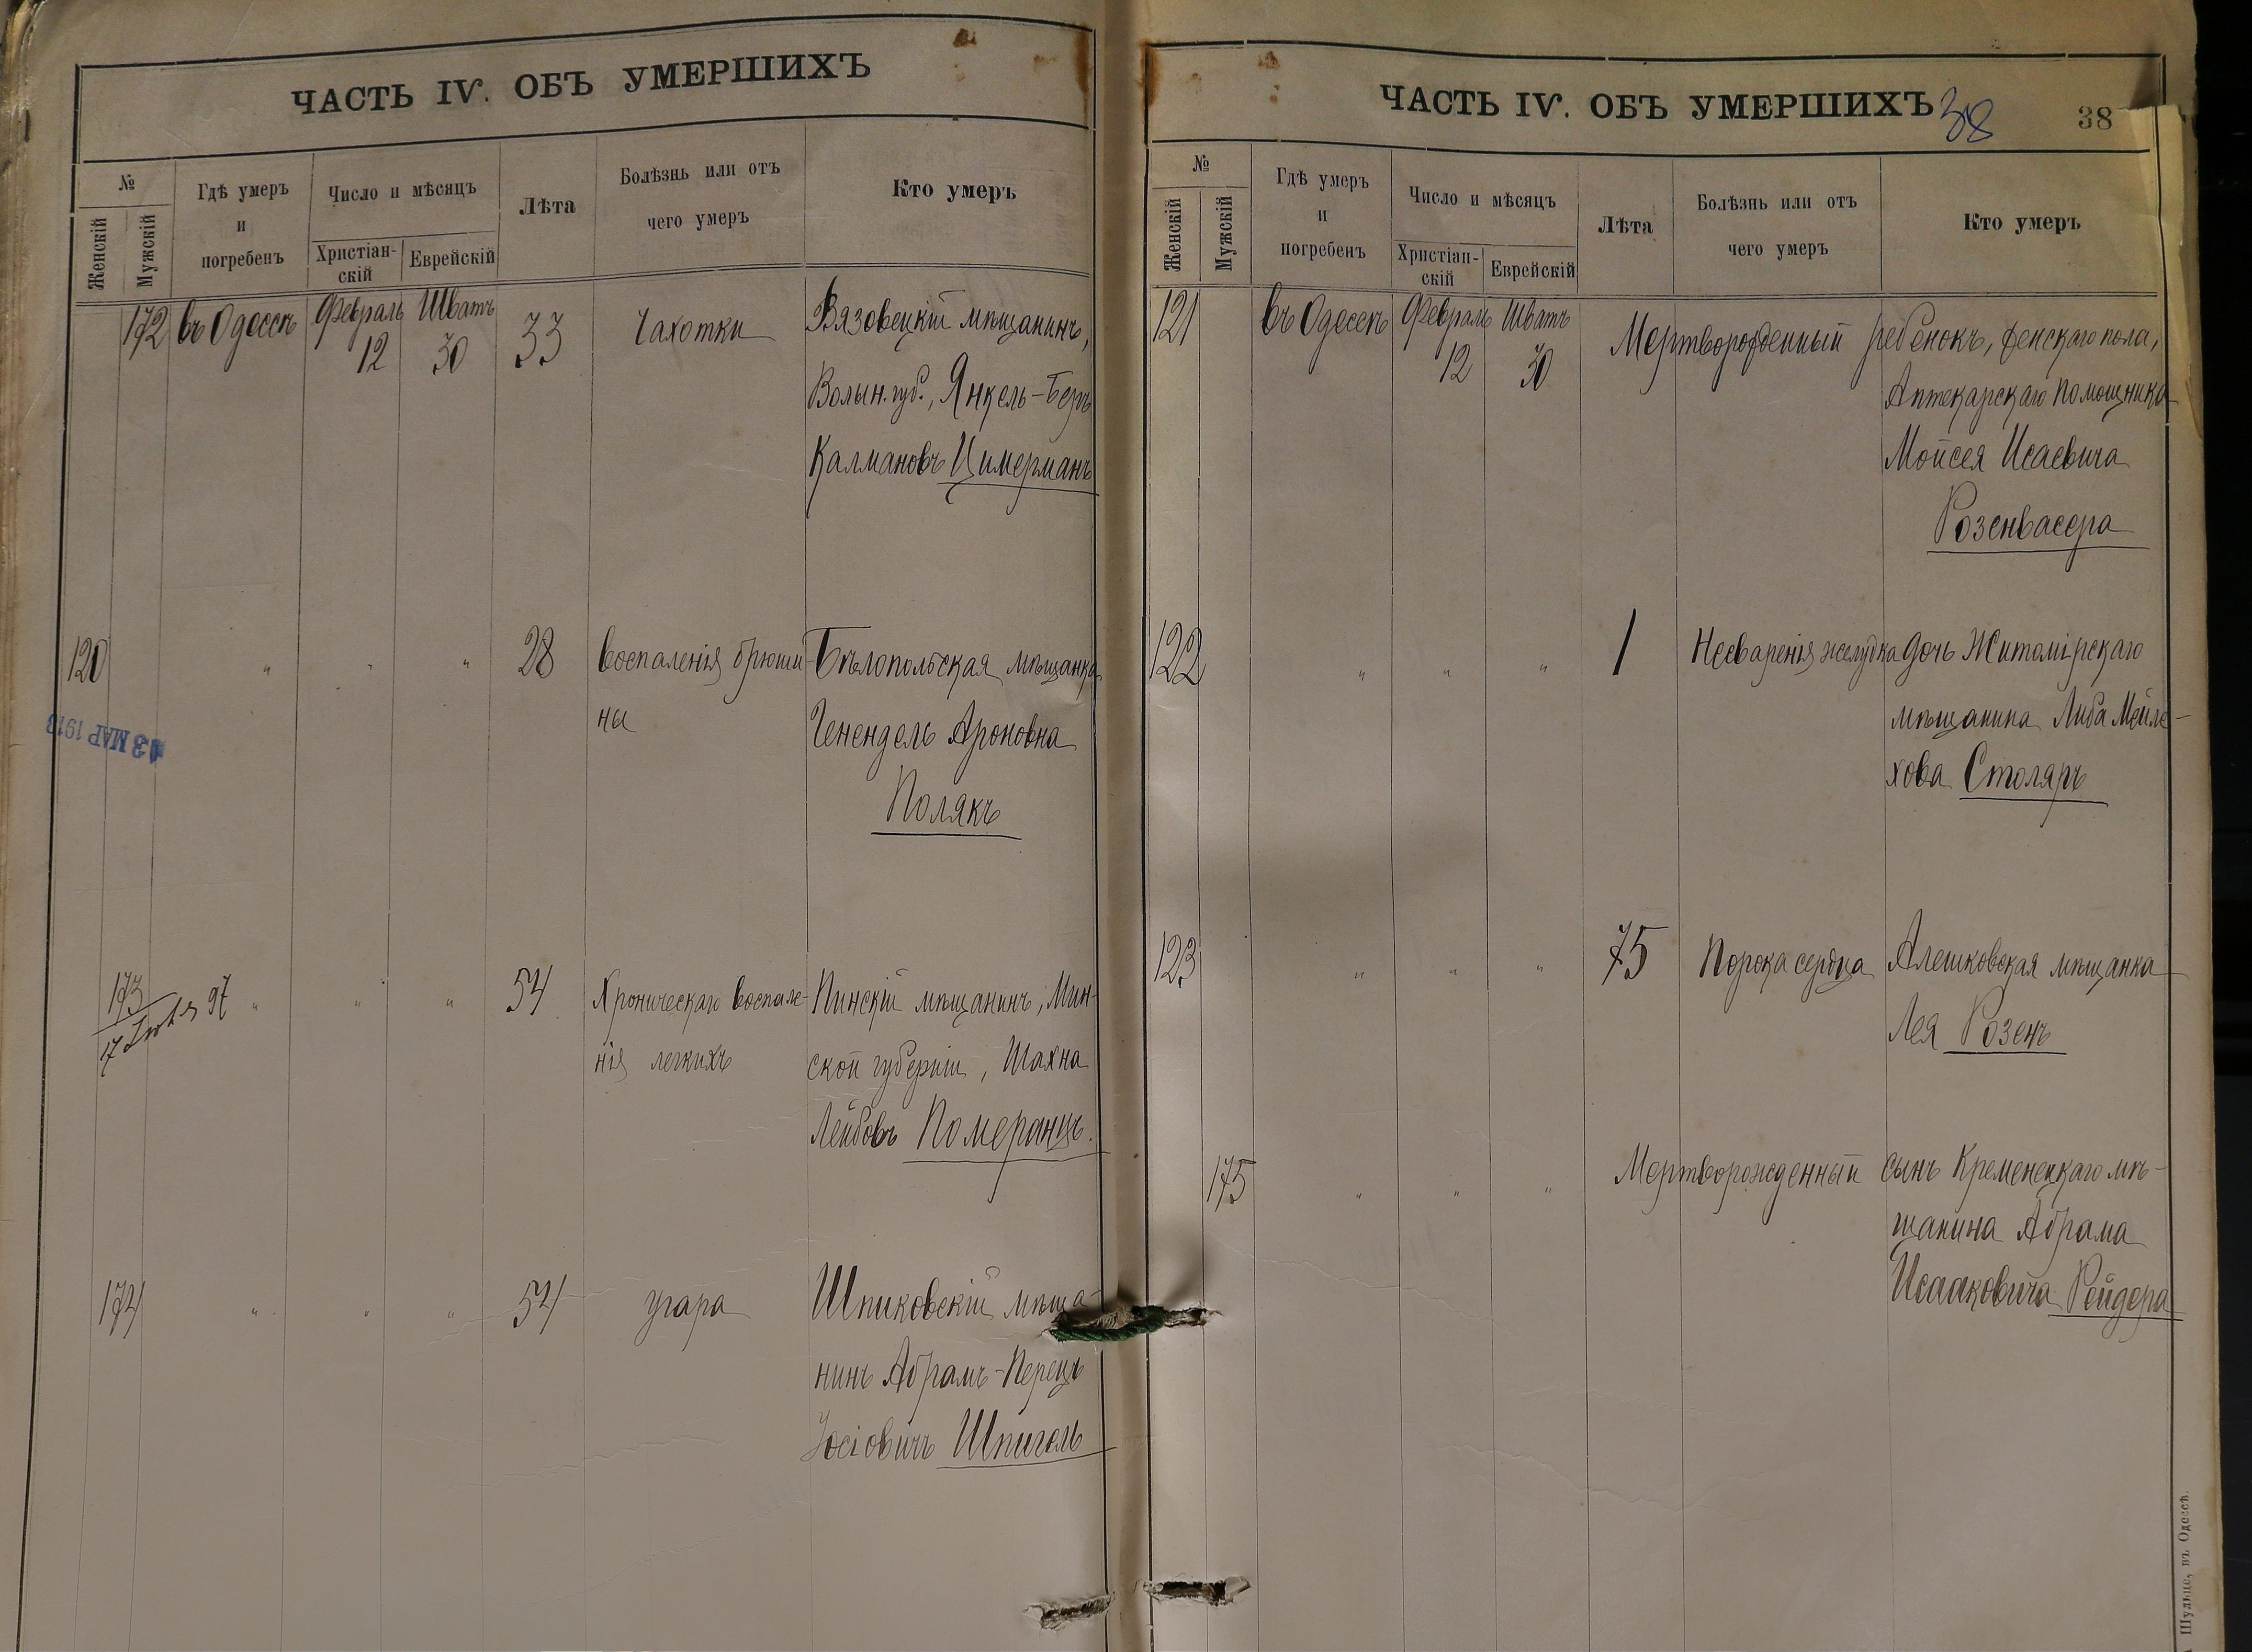 ЧАСТЬ IV. ОБЪ УМЕРШИХЪ
№
Женскій
Мужскій
Гдѣ умеръ
и
погребенъ
Число и мѣсяцъ
Христіан-
скій
Еврейскій
Лѣта
Болѣзнь или отъ
чего умеръ
Кто умеръ
172 въ Одессѣ Февраль Шватъ 33 Чахотки Вязовецкій мѣщанинъ,
12 30
Волын. губ., Янкель-Беръ
Калмановъ Цимерманъ
120 " " " 28 Воспаленія брюши- Бѣлопольская мѣщанка
ны Генендель Ароновна
Полякъ
13 МАР 1913
173 " " " 54 Хроническаго воспале- Пинскій мѣщанинъ, Мин-
нія легкихъ ской губерніи, Шахна
Лейбовъ Померанцъ.
174 " " " 54 угара Шпиковскій мѣща-
нинъ Абрамъ-Перецъ
Іосіовичъ Шпигель
ЧАСТЬ IV. ОБЪ УМЕРШИХЪ 38 38
№
Женскій
Мужскій
Гдѣ умеръ
и
погребенъ
Число и мѣсяцъ
Христіан-
скій
Еврейскій
Лѣта
Болѣзнь или отъ
чего умеръ
Кто умеръ
121 въ Одессѣ Февраль Шватъ Мертворожденный ребенокъ, женскаго пола,
12 30
Аптекарскаго помощника
Мойсея Исаевича
Розенвасера
122 " " " 1 Несваренія желудка Дочь Житомірскаго
мѣщанина Либа Мейле-
хова Столяръ
123 " " " 75 Порока сердца Алешковская мѣщанка
Лея Розенъ
175 " " " Мертворожденный сынъ Кременецкаго мѣ-
щанина Абрама
Исааковича Рейдера
Шульце, въ Одессѣ.